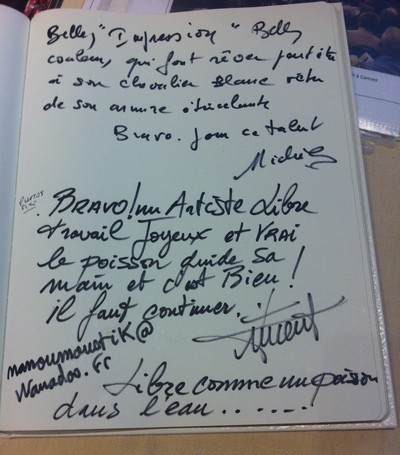 Belles "Impression" Belles
couleurs, qui font rêver peut être
à son chevalier Blanc vêtu
de son armure étincelante
Bravo. pour ce talent
BRAVO! un Artiste Libre
travail Joyeux et VRAI
le poisson guide Sa
main et c'est Bien!
il faut continuer.
manoumoustiK@
Wanadoo.fr
Libre comme un poisson
dans l'eau.......